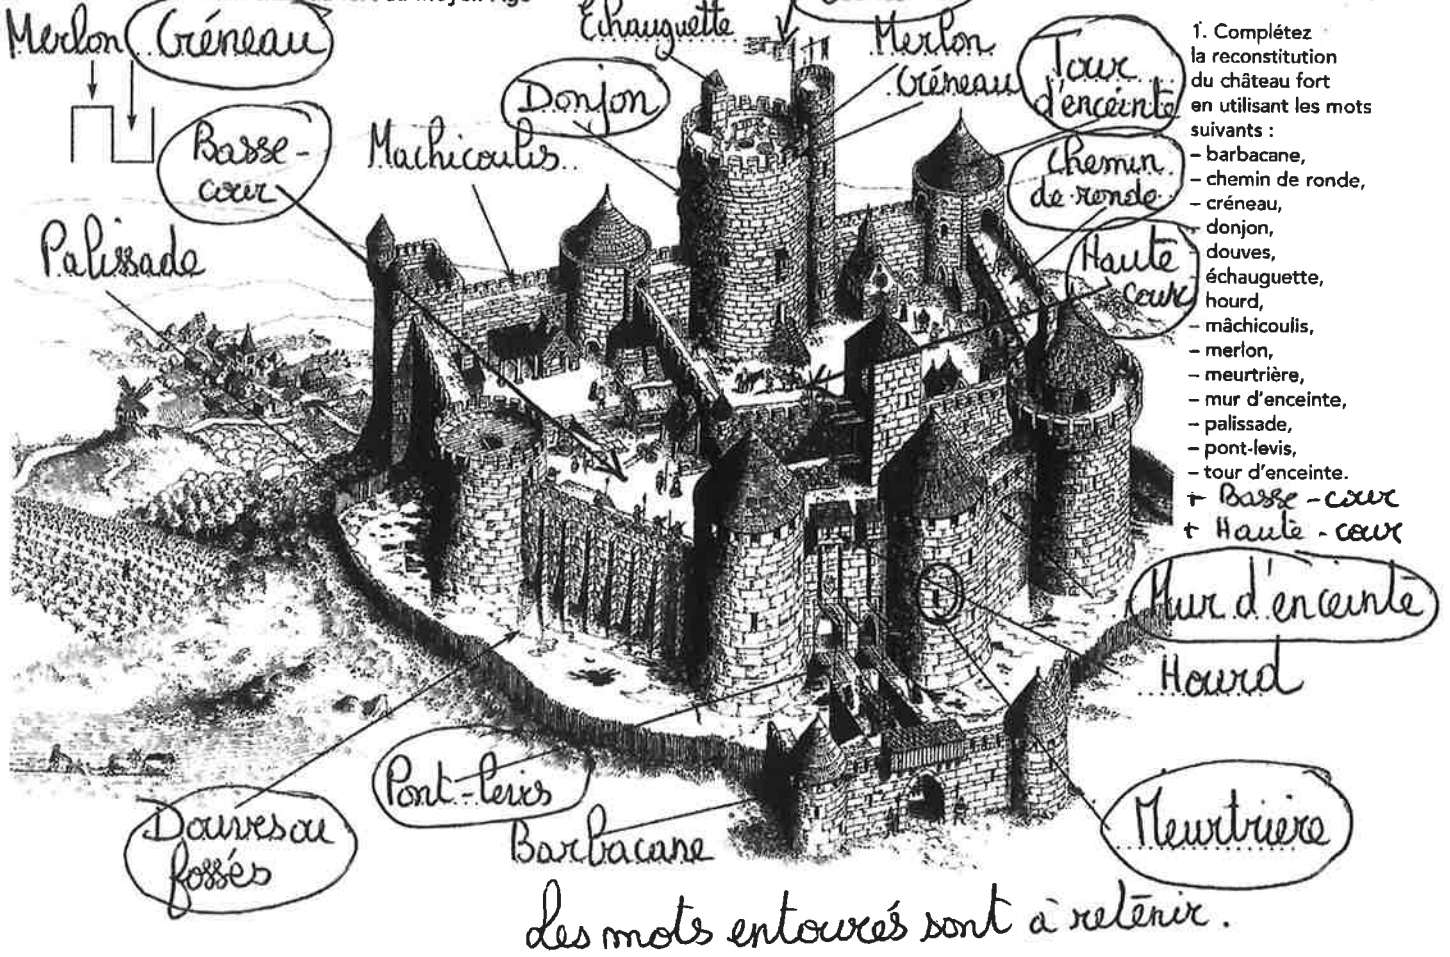 Merlon Créneau
Echauguette
Merlon
Créneau
Tour
d'enceinte
Donjon
Basse-
cour
Machicoulis
Chemin
de ronde
Palissade
Haute
cour
1. Complétez
la reconstitution
du château fort
en utilisant les mots
suivants :
– barbacane,
– chemin de ronde,
– créneau,
– donjon,
– douves,
– échauguette,
– hourd,
– mâchicoulis,
– merlon,
– meurtrière,
– mur d'enceinte,
– palissade,
– pont-levis,
– tour d'enceinte.
+ Basse-cour
+ Haute-cour
Mur d'enceinte
Hourd
Pont-levis
Douves ou
fossés
Barbacane
Meurtrière
Les mots entourés sont à retenir.